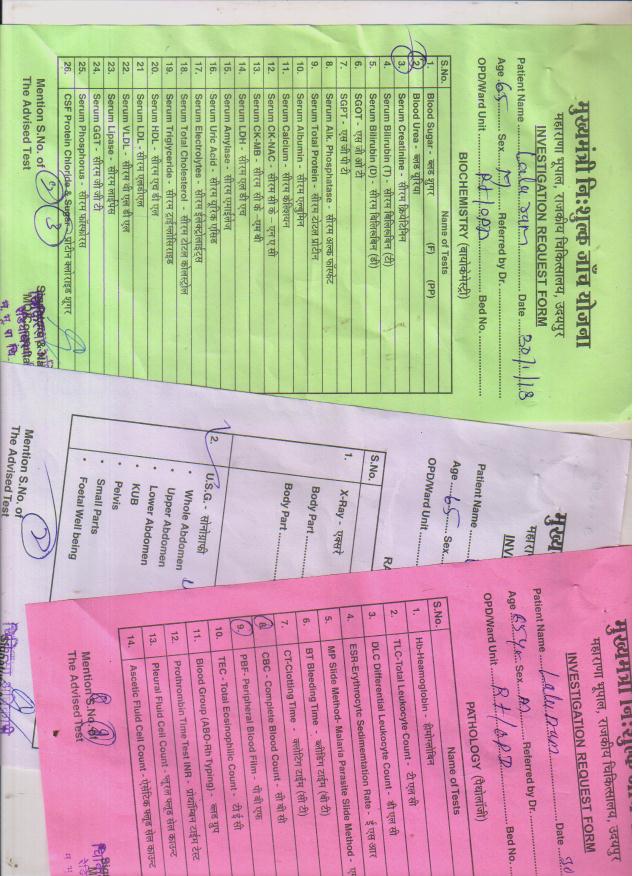 मुख्यमंत्री नि:शुल्क जाँच योजना
महाराणा भूपाल, राजकीय चिकित्सालय, उदयपुर
INVESTIGATION REQUEST FORM
Patient Name Laluram Date 30/1/18
Age 65 Sex M Referred by Dr.
OPD/Ward Unit RT/OPD Bed No.
BIOCHEMISTRY (बायोकेमेस्ट्री)
S.No. Name of Tests
1. Blood Sugar - ब्लड शुगर (F) (PP)
2. Blood Urea - ब्लड यूरिया
3. Serum Creatinine - सीरम क्रिएटिनिन
4. Serum Bilirubin (T) - सीरम बिलिरूबिन (टी)
5. Serum Bilirubin (D) - सीरम बिलिरूबिन (डी)
6. SGOT - एस जी ओ टी
7. SGPT - एस जी पी टी
8. Serum Alk. Phosphatase - सीरम अल्क फोस्फेट
9. Serum Total Protein - सीरम टोटल प्रोटीन
10. Serum Albumin - सीरम एल्बुमिन
11. Serum Calcium - सीरम केल्शियम
12. Serum CK-NAC - सीरम सी के - एन ए सी
13. Serum CK-MB - सीरम सी के - एम बी
14. Serum LDH - सीरम एल डी एच
15. Serum Amylase - सीरम एमाईलेज
16. Serum Uric Acid - सीरम यूरिक एसिड
17. Serum Electrolytes - सीरम इलेक्ट्रोलाईट्स
18. Serum Total Cholesterol - सीरम टोटल कोलस्ट्रोल
19. Serum Triglyceride - सीरम ट्राइग्लीसिराइड
20. Serum HDL - सीरम एच डी एल
21. Serum LDL - सीरम एलडीएल
22. Serum VLDL - सीरम वी एल डी एल
23. Serum Lipase - सीरम लाईपेस
24. Serum GGT - सीरम जी जी टी
25. Serum Phosphorus - सीरम फॉस्फोरस
26. CSF Protein Chloride & Sugar - प्रोटीन क्लोराइड शुगर
Mention S.No. of 2 3
The Advised Test
Patient Name
Age 65 Sex
OPD/Ward Unit
S.No.
1. X-Ray - एक्सरे
Body Part
Body Part
2. U.S.G. - सोनोग्राफी
• Whole Abdomen
• Upper Abdomen
• Lower Abdomen
• KUB
• Pelvis
• Small Parts
• Foetal Well being
Mention S.No. of 2
The Advised Test
मुख्यमंत्री नि:शुल्क
महाराणा भूपाल, राजकीय चिकित्सालय, उदयपुर
INVESTIGATION REQUEST FORM
Patient Name Laluram Date 30
Age 65 Sex M Referred by Dr.
OPD/Ward Unit RT/OPD Bed No.
PATHOLOGY (पैथोलॉजी)
S.No. Name of Tests
1. Hb-Heamoglobin - हीमोग्लोबिन
2. TLC-Total Leukocyte Count - टी एल सी
3. DLC Differential Leukocyte Count - डी एल सी
4. ESR-Erythrocytic Sedimemtation Rate - ई एस आर
5. MP Slide Method- Malaria Parasite Slide Method -
6. BT Bleeding Time - ब्लीडिंग टाईम (बी टी)
7. CT-Clotting Time - क्लोटिंग टाईम (सी टी)
8. CBC - Complete Blood Count - सी बी सी
9. PBF- Peripheral Blood Film - पी बी एफ
10. TEC - Total Eosinophilic Count - टी ई सी
11. Blood Group (ABO-Rh Typing) - ब्लड ग्रुप
12. Prothrombin Time Test INR - प्रोथ्रोम्बिन टाईम टेस्ट
13. Pleural Fluid Cell Count - प्लूरल फ्लूड सेल काउन्ट
14. Ascetic Fluid Cell Count - ऐसेटिक फ्लूड सेल काउन्ट
Mention S.No. of 8 9
The Advised Test